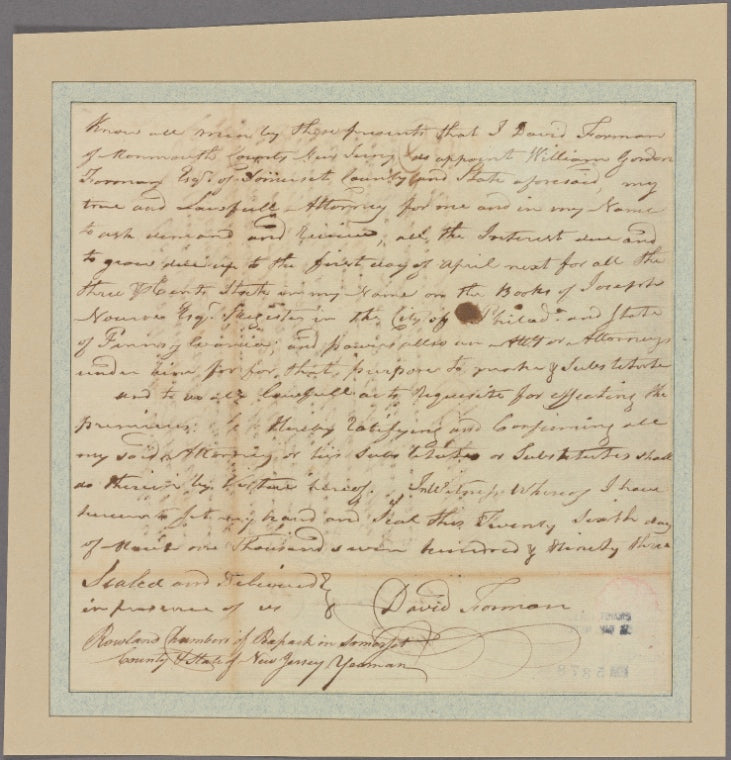 Know all men by these presents that I David Forman
of Monmouth County New Jersey do appoint William Gordon
Forman Esqr. of Somerset County and State aforesaid, my
true and Lawfull Attorney for me and in my Name
to ask demand and Receive, all the Interest due and
to grow due up to the first day of April next for all the
three Cents Stock in my Name on the Books of Joseph
Nourse Esqr. Register in the City of Philada. and State
of Pennsylvania; and power allso an Atty or Attorneys
under him for for that purpose to make & Substitute
and to do all lawfull acts Requisite for effecting the
premises. Hereby Ratifying and Confirming all
my said Attorney or his Substitute or Substitutes shall
do therein by Virtue hereof. In Witness Whereof I have
hereunto set my hand and Seal this Twenty Sixth day
of one Thousand seven hundred & Ninety three
Sealed and Delivered
in presence of us David Forman
Rowland Chambers of Bapack in Somerset
County & State of New Jersey Yeoman